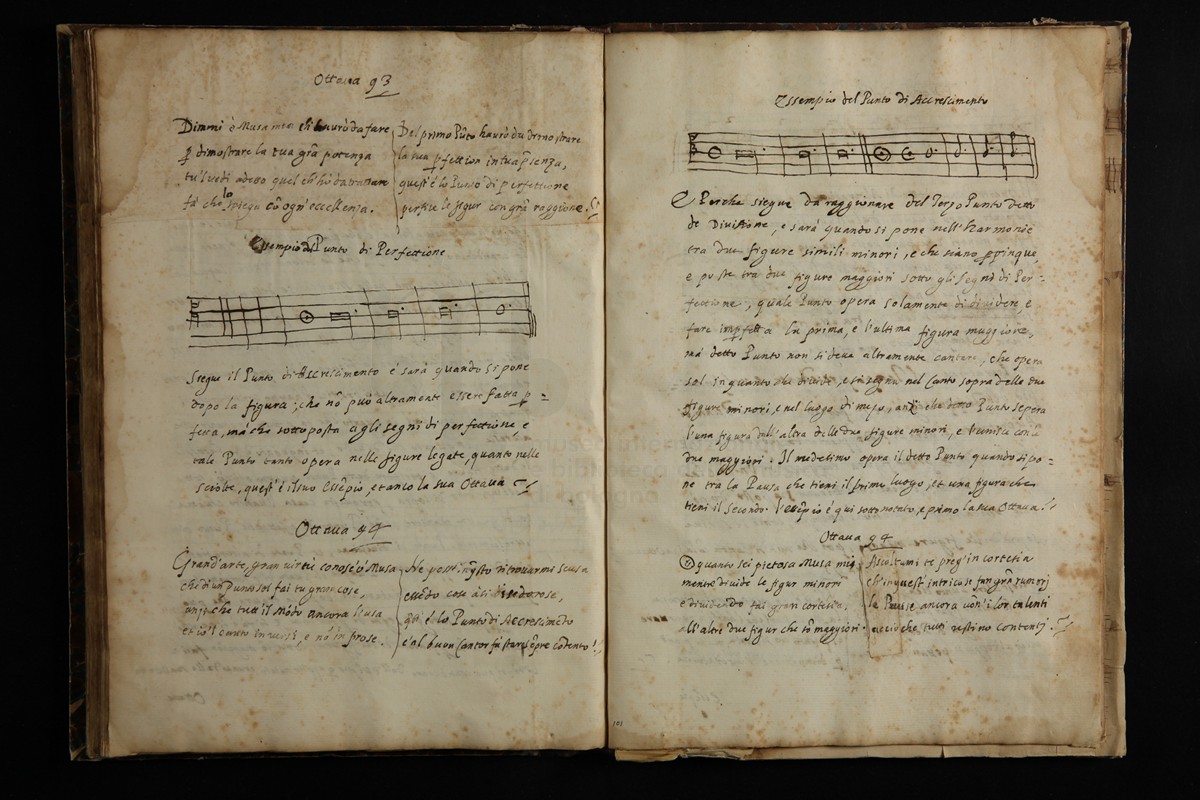 Ottava 93
Dimmi ò Musa mia ch'haurò da fare
p̱ dimostrare la tua grã potenza
tu'l vedi adesso quel ch'hò da trattare
fà che lo spiega cõ ogn'eccellenza.
Del primo Pũto haurò du dimostrare
la sua p̱fettion in tua p̱senza,
quest'è lo Punto di perfettione
perfice le figur con grã raggione.
Essempio del Punto di Perfettione
Siegue il Punto di Accrescimento e sarà quando si pone
dopo la figura, che nõ può altramente esser fatta p̱=
fetta, mà che sottoposta agli segni di perfettione e
tale Punto tanto opera nelle figure legate, quanto nelle
sciolte, quest'è il suo Essẽpio, et anco la sua Ottava
Ottava 94
Grand'arte, gran virtù conosc'ò Musa
che di un Punto sol fai tu gran cose,
anzi che tutt'il Mõdo ancora s'usa
et io'l canto in versi, e nõ in prose.
Ne poss'in q̃sto ritrovarmi scusa
essẽdo cose à ti
q̃st'è lo Punto di Accrescimẽto
e al buon Cantor fà star sẽpre cõtento!
Essempio del Punto di Accrescimento
E Perche siegue da raggionare del Terzo Punto detto
de Divisione, e sarà quando si pone nell'Harmonie
tra due figure simili minori, e che siano p̱pinque,
e poste tra due figure maggiori sotto gli segni di Per-
fettione, quale Punto opera solamente di dividere, e
fare imp̱fetta la prima, e l'ultima figura maggiore,
mà detto Punto non si deve altramente cantare, che opera
sol in quanto che divide, e si segna nel Canto sopra delle due
figure minori, e nel luogo di mezo, anzi che detto Punto separa
l'una figura dall'altra delle due figure minori, e l'unisce con le
due maggiori. Il medesimo opera il detto Punto quando si po=
ne tra la Pausa che tieni il primo luogo, et una figura che
tieni il secondo. l'essẽpio è qui sotto notato, e primo la sua Ottava!
Ottava 94
O quanto sei pietosa Musa mia
mentre divide le figur minori
e dividendo fai gran cortesia
all'altre due figur che sõ maggiori.
Ascoltami te preg'in cortesia
ch'in quest'intrico se fan grã rumorj
le Pause ancora con'i lor talenti
acciò che tutti restino contentj.
101